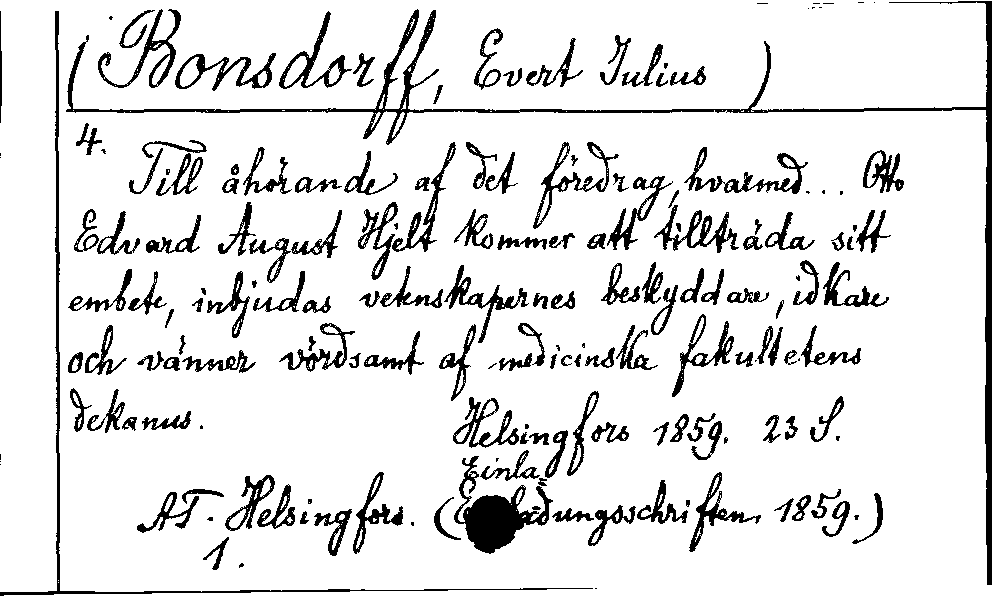 (Bonsdorff, Evert Julius )
4.
Till åhörande af det föredrag, hvarmed... Otto
Edvard August Hjelt kommer att tillträda sitt
embete, inbjudas vetenskapernes beskyddare, idkare
och vänner vördsamt af medicinska fakultetens
dekanus.
Helsingfors 1859. 23 S.
Einla=
AT. Helsingfors. (Einladungsschriften. 1859.)
1.